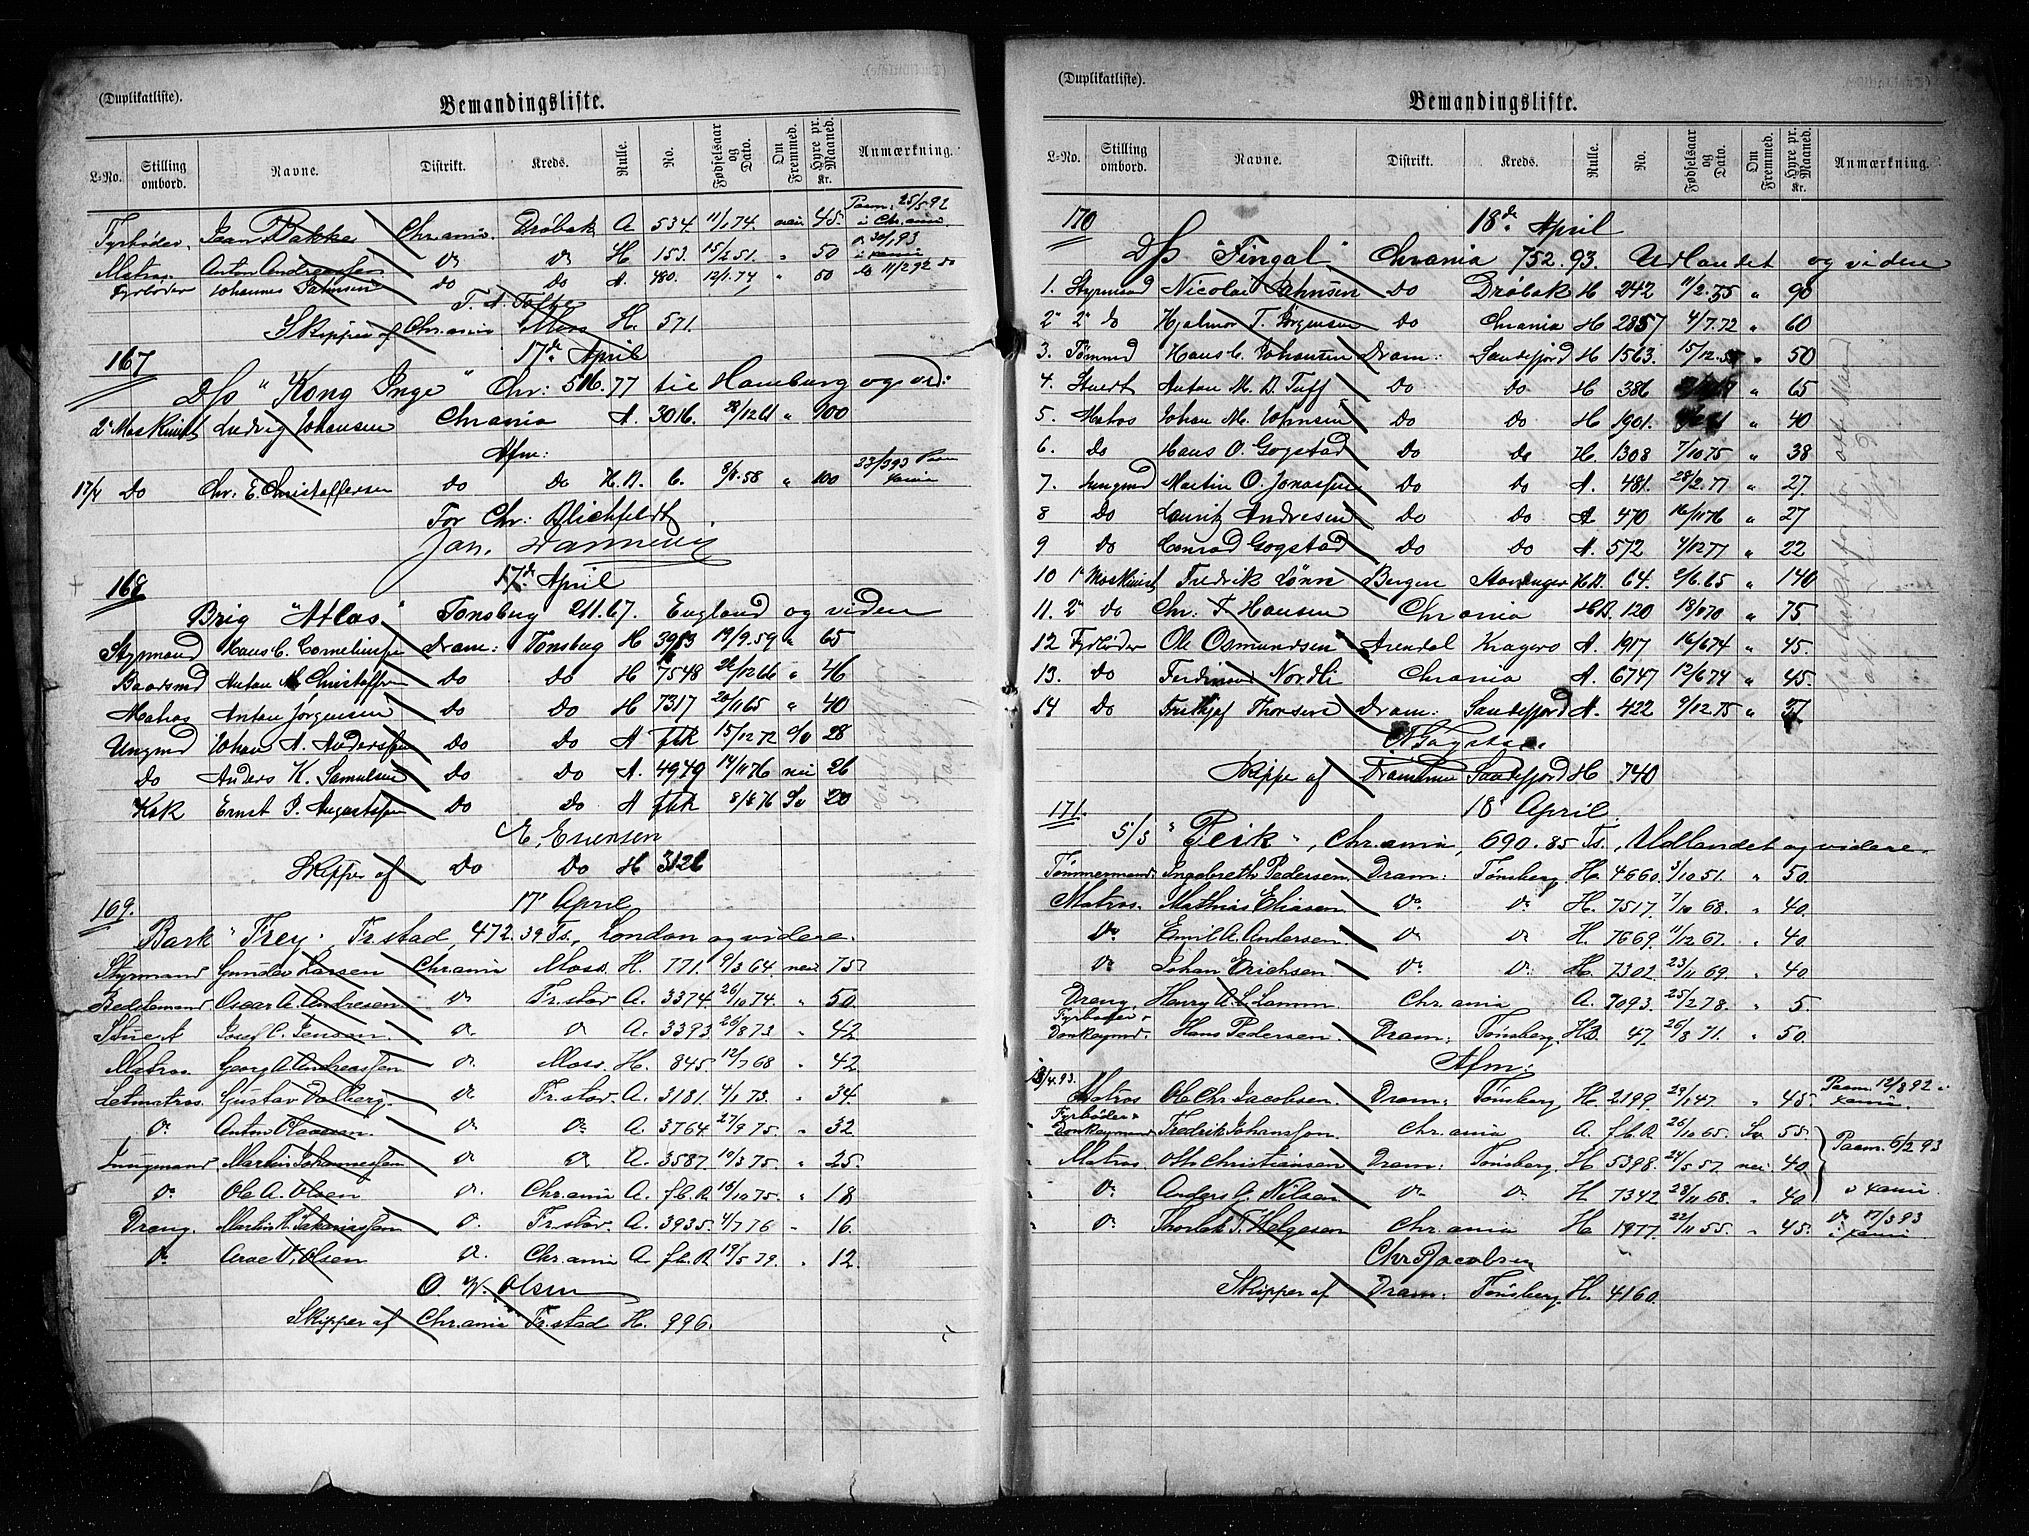 (Duplikatliste).
Bemandingsliste.
L-No. Stilling ombord. Navne. Distrikt. Kreds. Rulle. No. Fødselsaar og Dato. Om Fremmed. Hyre pr. Maaned. Kr. Anmærkning.
Fyrbøder Jean Bakke Chrania Drøbak A 534 11/1 74 nei 45 Paam: 25/5 92 i Chrania
Matros Anton Andreassen do do H 153 15/2 51 " 50 30/1 93
Fyrbøder Johannes do do A 480 12/1 74 " 50 do 11/2 92 do
Skipper af Chrania Moss H. 571
167 17de April
D/s "Kong Inge" Chr: 516.77 til Hamburg og vid:
2' Maskinist Ludvig Johansen Chrania A. 3016. 28/12 61 " 100
Afm:
17/4 Do Chr. E. Christoffersen do Do H.B. 6. 8/8.58 " 100 23/3 93
For Chr: Blichfeldt
168 17de April
Brig "Atlas" Tønsberg 211.67. England og videre
Styrmand Hans C. Corneliussen Dram: Tønsberg H 3913 19/9.59 " 65
Baadsmd Anton M Christoffersen Do Do H 7548 26/12 66 " 46
Matros Anton Jørgensen Do Do H 7317 20/11 65 " 40
Ungmd Johan A. Anderssen Do Do A fbR 15/12 72 Sv 28
Do Anders K. Samuelsen Do Do A. 4949 14/11 76 nei 26
Kok Ernst P. Augustsen Do Do A fbR 8/8 76 Sv 20
Skipper af Do Do H 3126
169. 17' April
Bark "Frey", Fr.stad, 472.39 Ts, London og videre.
Styrmand Gunder Larsen Chrania Moss H. 771. 9/3 64. nei 75
Bedstemand Oscar A. Andresen do Fr.stad A. 3374 26/10 74. " 50
Stuert Josef C. Jensen do do A. 3393 26/8 73. " 42
Matros Georg A. Andreassen do Moss H. 845. 12/7 68 " 42
Letmatros. Gustav Dalberg do Fr.stad A. 3181 4/1 73. " 34
do Anton Olaussen do do A. 3764 27/9 75. " 32
Jungmand Martin Johannessen do do A. 3587. 10/3 75. " 25.
do Ole A. Olsen do Chrania A. f.b.R 18/10 75. " 18
Dreng. Martin Zakariassen do Fr.stad A. 3935. 4/7 76 " 16.
do Olsen do Chrania A. f.b.R 19/5 79. " 12.
O. W. Olsen
Skipper af Chrania Fr.stad H. 996.
(Duplikatliste).
Bemandingsliste.
L-No. Stilling ombord. Navne. Distrikt. Kreds. Rulle. No. Fødselsaar og Dato. Om Fremmed. Hyre pr. Maaned. Kr. Anmærkning.
170 18de April
D/s "Fingal" Chrania 752.93. Udlandet og videre
1. Styrmand Nicolai Johnsen Do Drøbak H 242 " 90
2" 2' do Hjalmar T. Jørgensen Do Chrania H 2857 4/7.72 " 60
3. Tømmd Hans C. Johansen Dram: Sandefjord H 1563. 15/12 " 50
4. Stuert Anton M. D. Tuff Do Do H 386 " 65
5. Matros Johan M. Johnsen Do Do H 1901. " 40
6. Do Hans O. Gogstad Do Do H. 1308 7/10 75 " 38
7. Jungmd Martin O. Jonassen Do Do A. 481. 28/2.77 " 27
8 Do Lauritz Andresen Do Do A. 470 16/11 76 " 27
9 Do Conrad Gogstad Do Do A. 572 4/12 77 " 22
10 1' Maskinist Fredrik Lønn Bergen Stavanger H.B. 64. 2/6.65 " 140
11. 2' Do Chr. T. Hansen Chrania H.B. 120 " 75
12 Fyrbøder Ole Osmundsen Arendal Kragerø A. 1917 16/6 74 " 45.
13. Do Nordli Chrania A. 6747 12/6 74 " 45.
14 Do Frithjof Thorsen Dram: Sandefjord A. 422 9/12 75 "
Skipper af Drammen Sandefjord H 740
171. 18' April
S/S "Peik", Chrania, 690.85 Ts., Udlandet og videre.
Tømmermand Ingebreth Pedersen Dram: Tønsberg H. 4660. 3/10 51. " 50.
Matros. Mathias Eliasen do do H. 7517. 7/10 68. " 40.
do Emil A. Andersen do do H. 7669. 11/12 67. " 40
do Johan Erichsen do do H. 7302. 23/11 69. " 40
Dreng Henry A. C. Lamm Chrania A. 7093. 25/2 78. " 5
Fyrbøder & Donkeymd. Hans Pedersen Dram: Tønsberg H.B. 47. 26/8 71. " 50.
Afm:
18/4.93. Matros Ole Chr. Jacobsen Dram: Tønsberg H. 2199. 29/1 47. " 45. Paam. 12/8 92
Fyrbøder & Donkeymand Fredrik Johanssen Chrania A. f.b.R 26/10 65. Sv 55 Paam. 6/2 93
Matros Oth. Christiansen Dram: Tønsberg H 5398. 24/5 57. nei 40
do Anders G. Nilsen do do H 7342 23/11 68. " 40
do Thorleif T. Helgesen Chrania H 1977. 22/11 55. " 45. do 17/3 93
Chr. Jacobsen
Skipper af Dram: Tønsberg H. 4160.